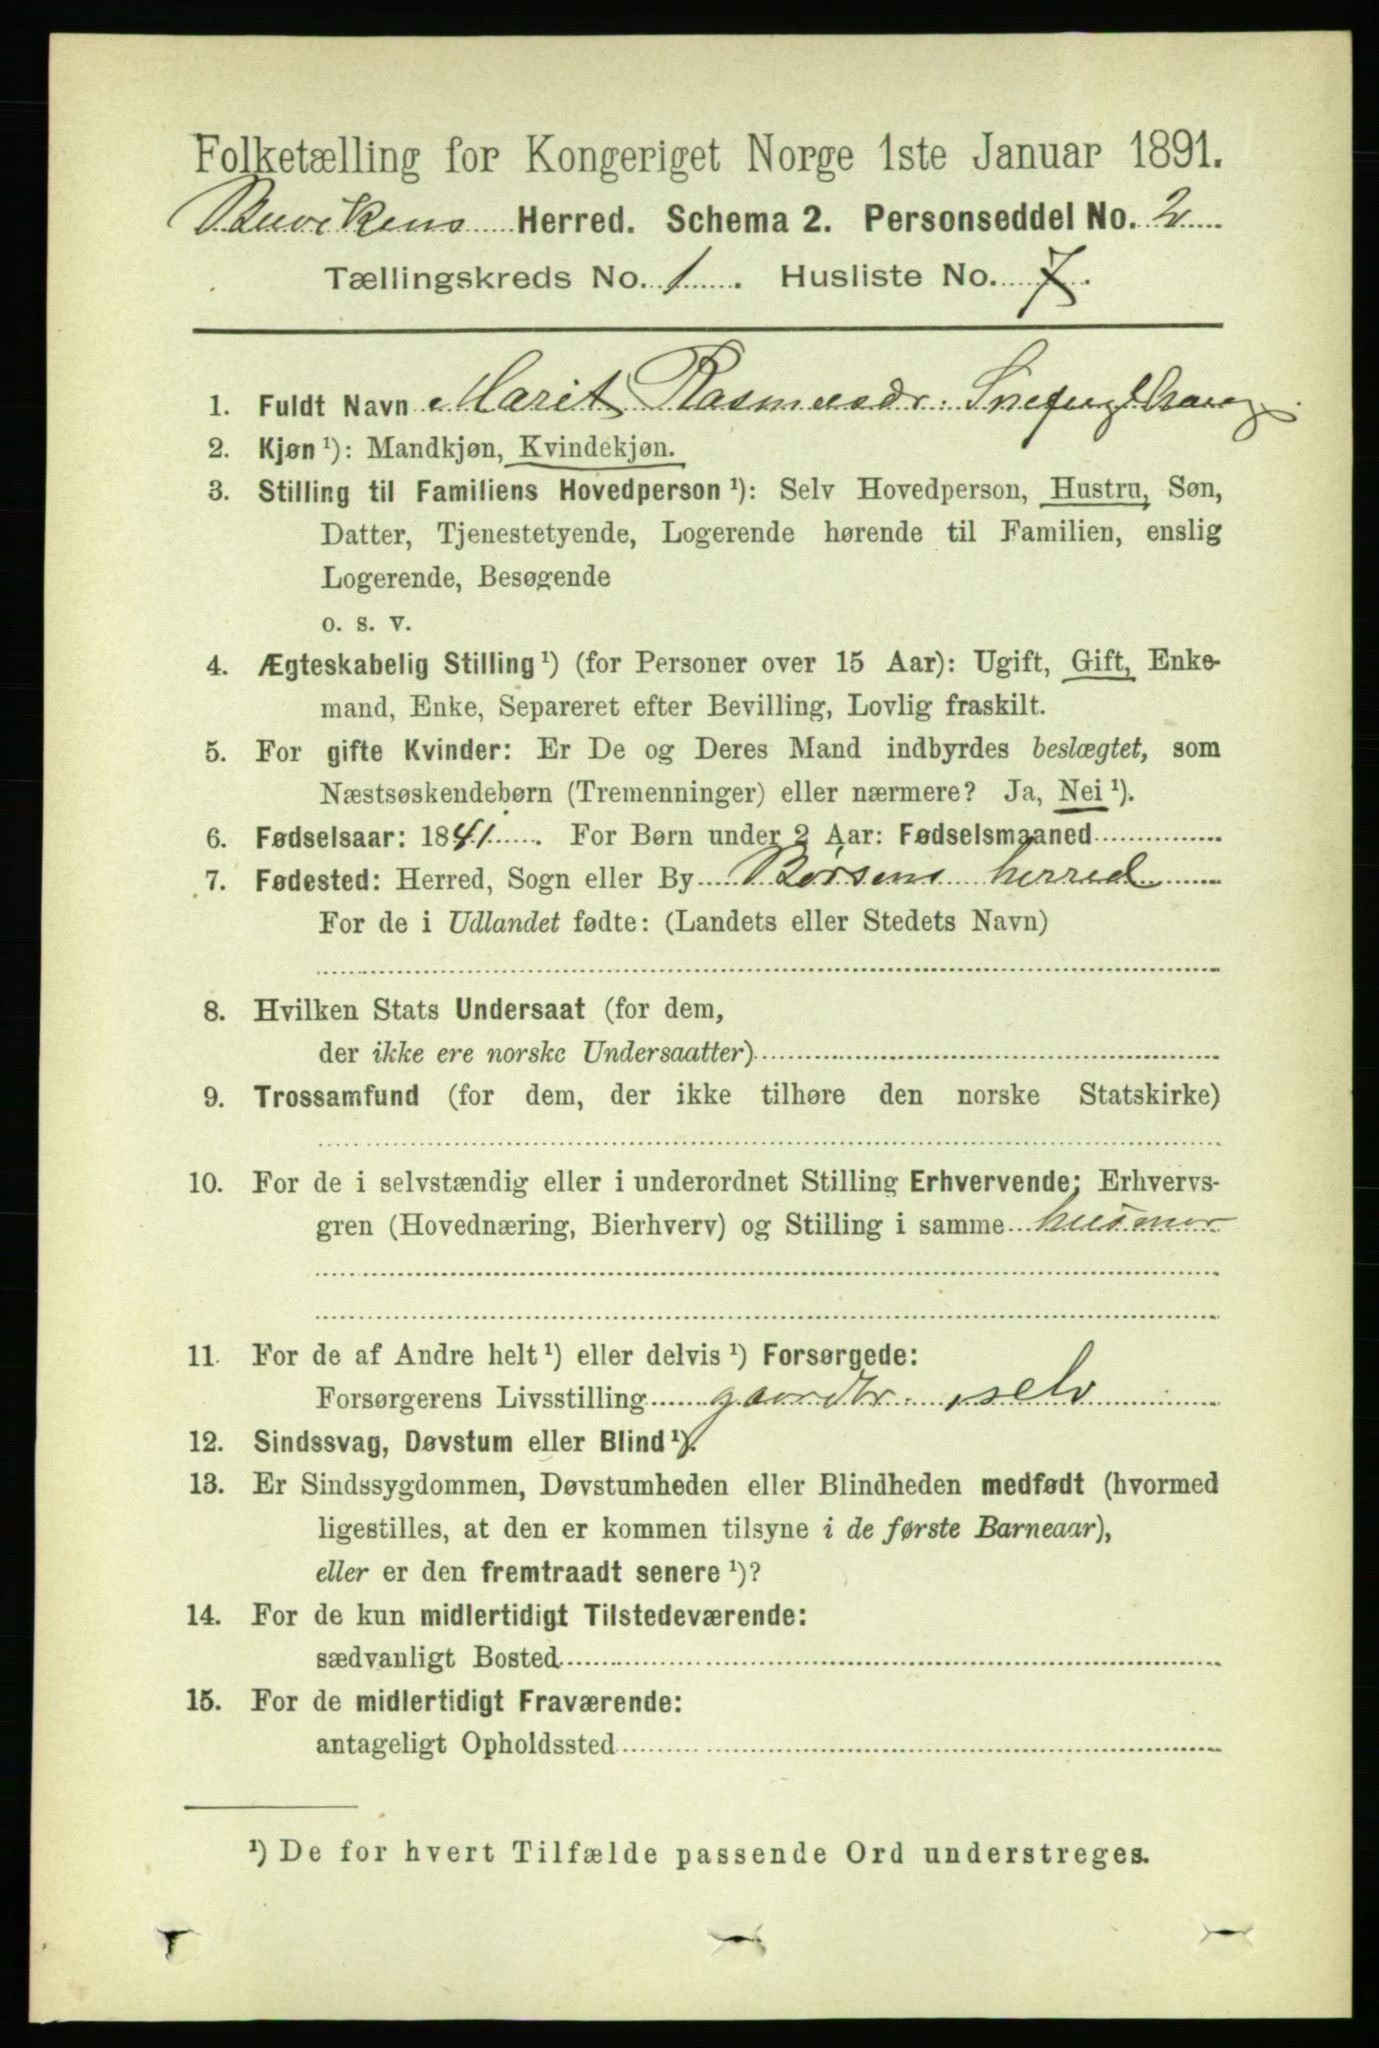 Folketælling for Kongeriget Norge 1ste Januar 1891.
Buvikens Herred. Schema 2. Personseddel No. 2
Tællingskreds No. 1. Husliste No. 7.
1. Fuldt Navn Marit Rasmusdr. Snefuglhaug
2. Kjøn ¹): Mandkjøn, Kvindekjøn.
3. Stilling til Familiens Hovedperson ¹): Selv Hovedperson, Hustru, Søn,
Datter, Tjenestetyende, Logerende hørende til Familien, enslig
Logerende, Besøgende
o. s. v.
4. Ægteskabelig Stilling ¹) (for Personer over 15 Aar): Ugift, Gift, Enke-
mand, Enke, Separeret efter Bevilling, Lovlig fraskilt.
5. For gifte Kvinder: Er De og Deres Mand indbyrdes beslægtet, som
Næstsøskendebørn (Tremenninger) eller nærmere? Ja, Nei ¹).
6. Fødselsaar: 1841. For Børn under 2 Aar: Fødselsmaaned
7. Fødested: Herred, Sogn eller By Børsens herred
For de i Udlandet fødte: (Landets eller Stedets Navn)
8. Hvilken Stats Undersaat (for dem,
der ikke ere norske Undersaatter)
9. Trossamfund (for dem, der ikke tilhøre den norske Statskirke)
10. For de i selvstændig eller i underordnet Stilling Erhvervende; Erhvervs-
gren (Hovednæring, Bierhverv) og Stilling i samme husmor
11. For de af Andre helt ¹) eller delvis ¹) Forsørgede:
Forsørgerens Livsstilling gaardbr. selv
12. Sindssvag, Døvstum eller Blind ¹).
13. Er Sindssygdommen, Døvstumheden eller Blindheden medfødt (hvormed
ligestilles, at den er kommen tilsyne i de første Barneaar),
eller er den fremtraadt senere ¹)?
14. For de kun midlertidigt Tilstedeværende:
sædvanligt Bosted
15. For de midlertidigt Fraværende:
antageligt Opholdssted
¹) De for hvert Tilfælde passende Ord understreges.